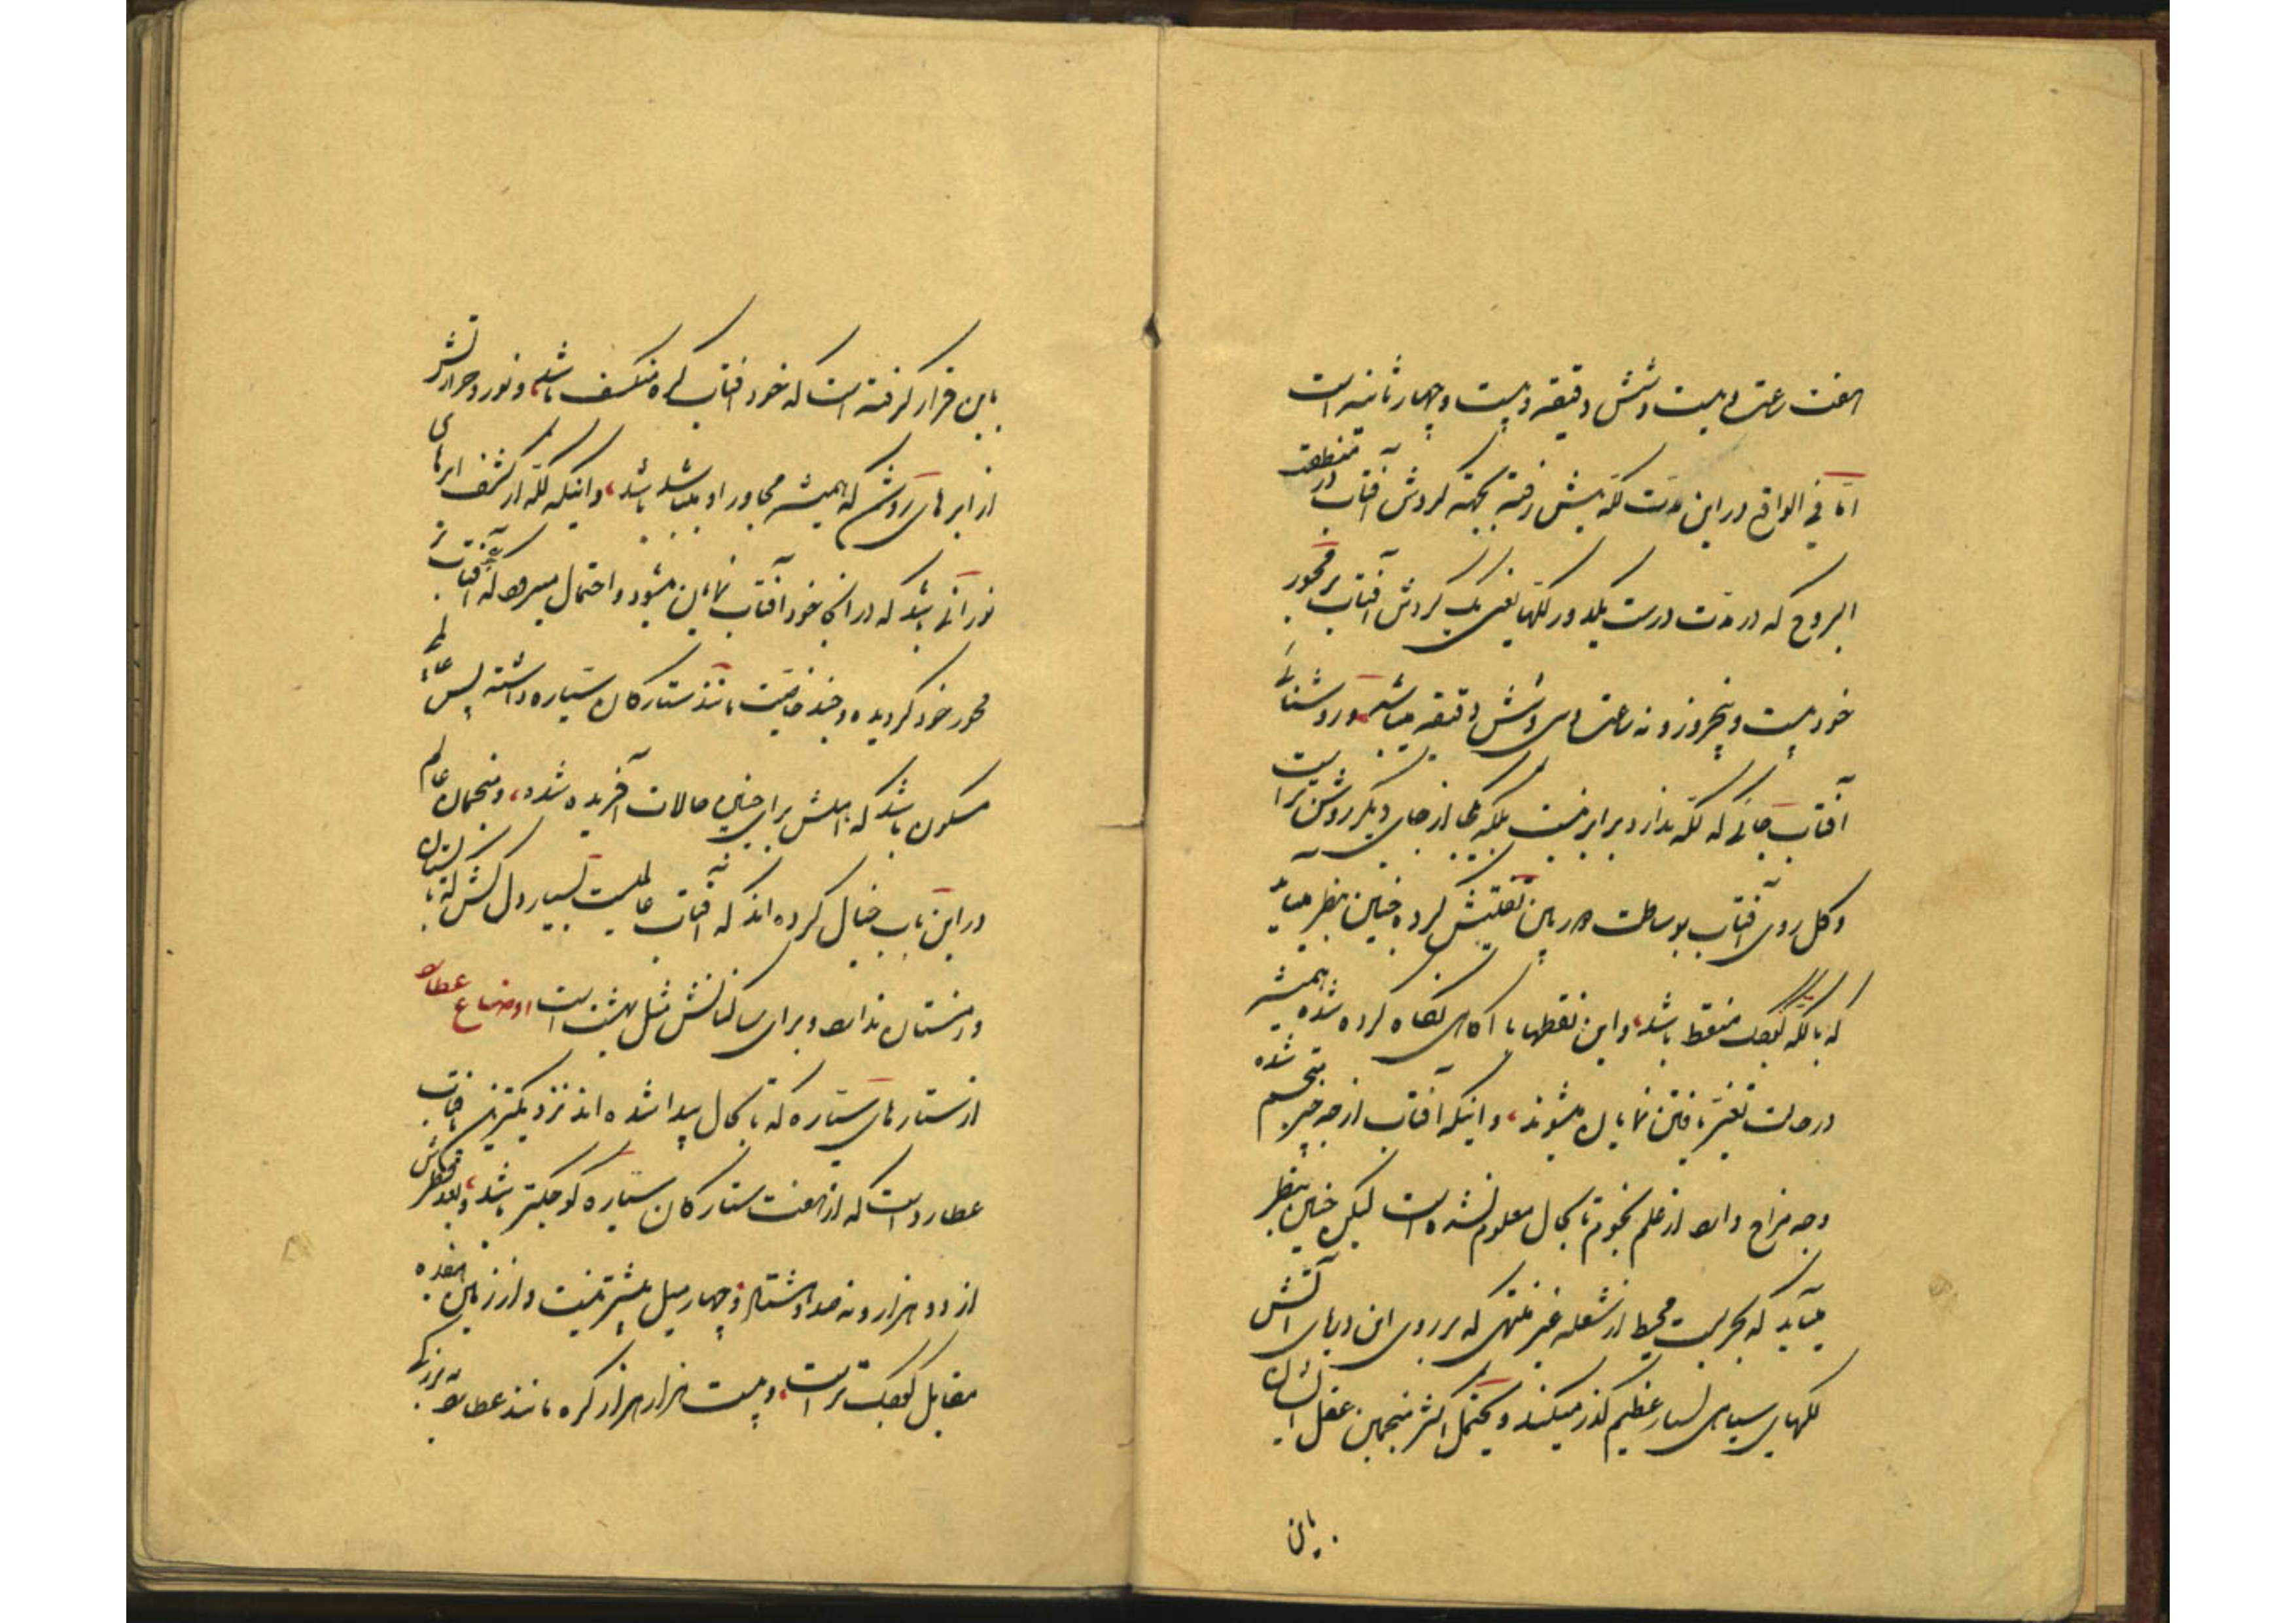 هفت ساعت و بیست و شش دقیقه و بیست و چهار ثانیه است
اما فی الواقع در این مدت لکه پیش رفته بجهته گردش آفتاب در منطقة
البروج که در مدت درست یکدور لکها یعنی یک گردش آفتاب بر محور
خود بیست و پنجروز و نه ساعت و سی و شش دقیقه میباشد، و روشنائی
آفتاب جائی که لکه ندارد برابر نیست بلکه یکجا از جای دیگر روشن تر است
و کل روی آفتاب بوساطت دوربین تفتیش کرده چنین بنظر میآید
که با لکه کوچک منقط باشد، و این نقطها با آگاهی نگاه کرده شده همیشه
در حالت تغییر یافتن نمایان میشوند، و اینکه آفتاب از چه چیز مجسم شده
و چه مزاج دارد از علم نجوم تا بحال معلوم نشده است لیکن چنین بنظر
میآید که بحریست محیط از شعله غیر منتهی که بر روی این دریای آتش
لکهای سیاهی بسیار عظیم گذر میکنند و یحتمل اکثر منجمین عقل ایشان
باین
باین قرار گرفته است که خود آفتاب کره منکسف باشد، و نور و حرارتش
از ابرهای روشن که همیشه مجاور او میباشند باشد، و اینکه لکه از کشف ابرهای
نورانی باشد که در آنجا خود آفتاب نمایان میشود و احتمال میرود که آفتاب بر
محور خود گردیده و چند خاصیت مانند ستارگان سیاره داشته پس عالمی
مسکون باشد که اهلش برای چنین حالات آفریده شده، و منجمان عالم
در این باب خیال کرده اند که آفتاب عالمیست بسیار دل کش که تابستان
و زمستان ندارد و برای ساکنانش مثل بهشت است اوضاع عطارد
از ستارهای سیاره که تا بحال پیدا شده اند نزدیکترین بآفتاب
عطارد است که از هفت ستارگان سیاره کوچکتر باشد، و بعد قطرش
از دو هزار و نه صد و هشتاد و چهار میل بیشتر نیست و از زمین هفده
مقابل کوچک تر است، و بیست هزار هزار کره مانند عطارد به بزرگی